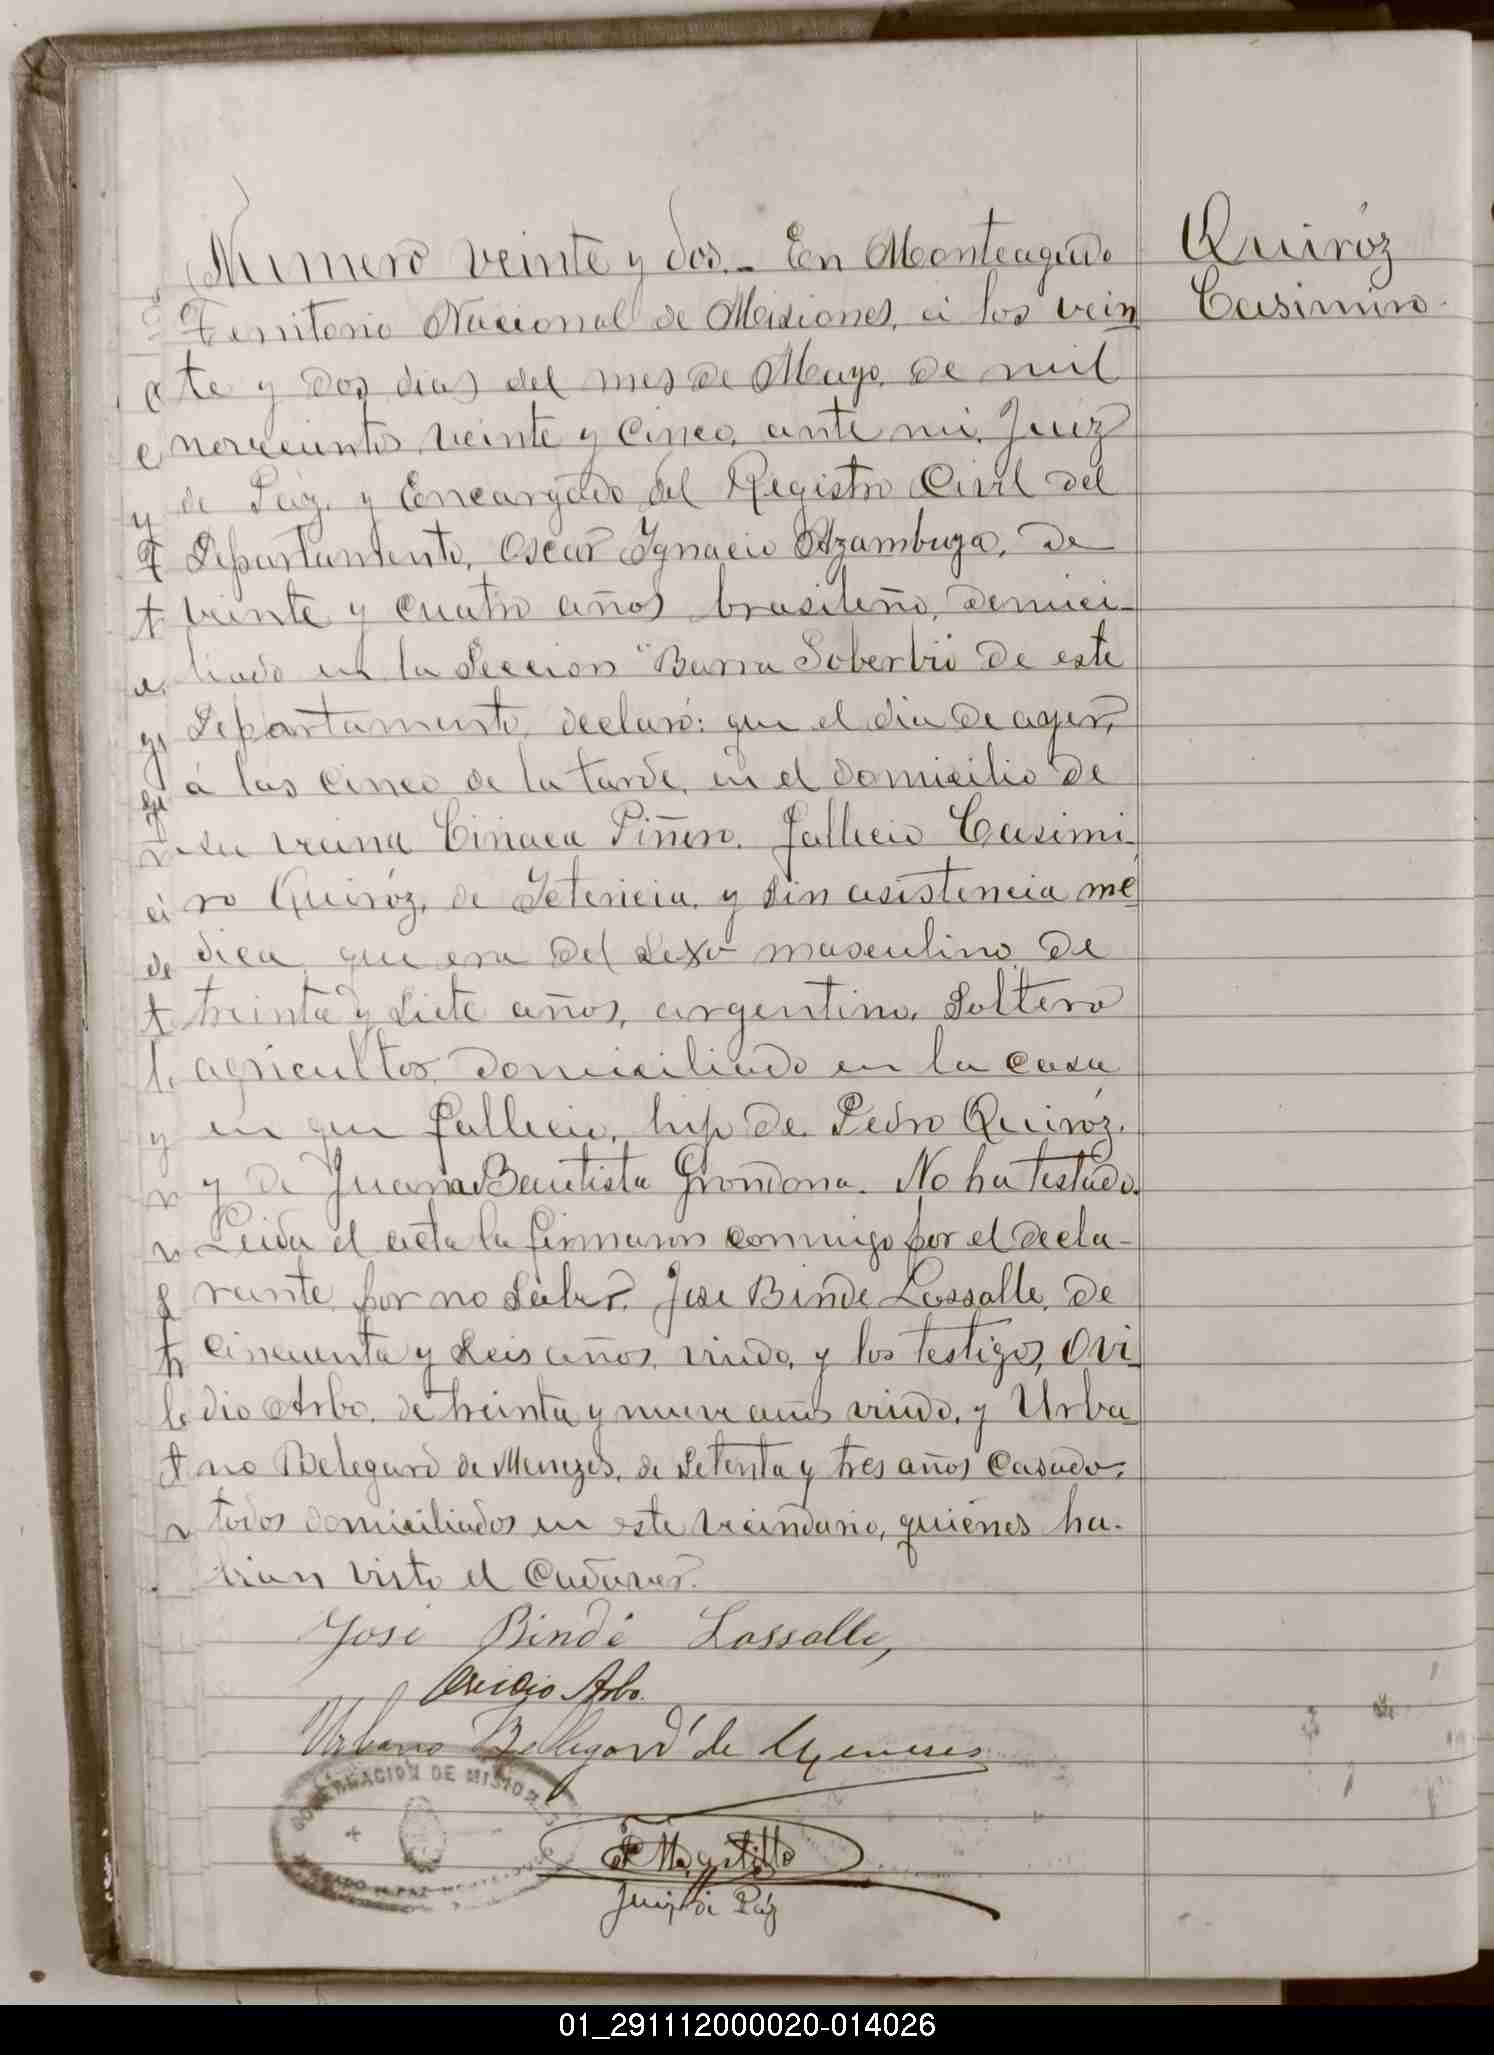 Numero veinte y dos.- En Monteagudo
Territorio Nacional de Misiones, á los vein
te y dos dias del mes de Mayo, de mil
novecientos veinte y cinco, ante mi, Juez
de Páz, y Encargado del Registro Civil del
Departamento, Oscar Ignacio Azambuya, de
veinte y cuatro años brasileño, domici-
liado en la Seccion "Barra Soberbio de este
Departamento, declaró: que el dia de ayer,
á las cinco de la tarde, en el domicilio de
su vecina Ciriaca Piñero, fallecio Casimi-
ro Quiróz, de Ictericia, y sin asistencia mé
dica, que era del sexo masculino, de
treinta y siete años, argentino, Soltero
agricultor, domiciliado en la casa
en que fallecio, hijo de Pedro Quiróz,
y de Juana Bautista Grondona. No ha testado.
Leida el acta la firmaron conmigo por el decla-
rante, por no saber, Jose Binde Lassalle, de
cincuenta y seis años, viudo, y los testigos, Ovi
dio Arbo, de treinta y nueve años viudo, y Urba
no Belegard de Menezes, de setenta y tres años Casado,
todos domiciliados en este vecindario, quiénes ha-
bian visto el Cadaver.
José Bindé Lassalle,
Ovidio Arbo.
Urbano Bellegard de Meneses
GOBERNACIÓN DE MISIONES
JUZGADO DE PAZ MONTEAGUDO
Juez de Páz
Quiróz
Casimiro.
01_291112000020-014026